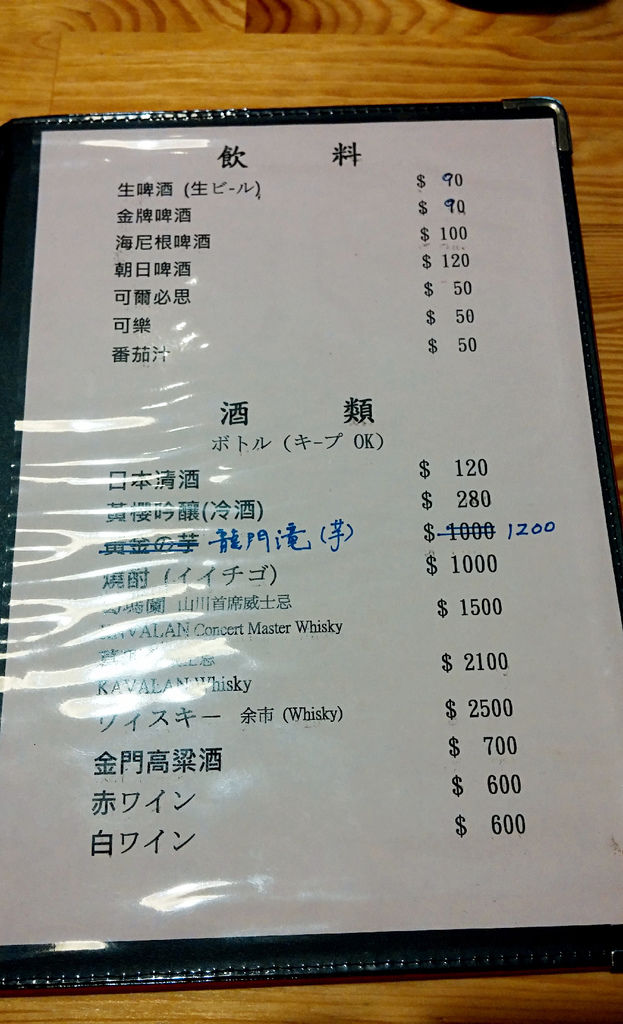 飲 料
生啤酒 (生ビ-ル) $ 90
金牌啤酒 $ 90
海尼根啤酒 $ 100
朝日啤酒 $ 120
可爾必思 $ 50
可樂 $ 50
番茄汁 $ 50
酒 類
ボトル (キ-プ OK)
日本清酒 $ 120
黃櫻吟釀(冷酒) $ 280
黃金の芋 龍門滝 (芋) $ 1000 1200
燒酎 (イイチゴ) $ 1000
噶瑪蘭 山川首席威士忌 $ 1500
KAVALAN Concert Master Whisky
威士忌 $ 2100
KAVALAN Whisky
ウイスキー 余市 (Whisky) $ 2500
金門高粱酒 $ 700
赤ワイン $ 600
白ワイン $ 600